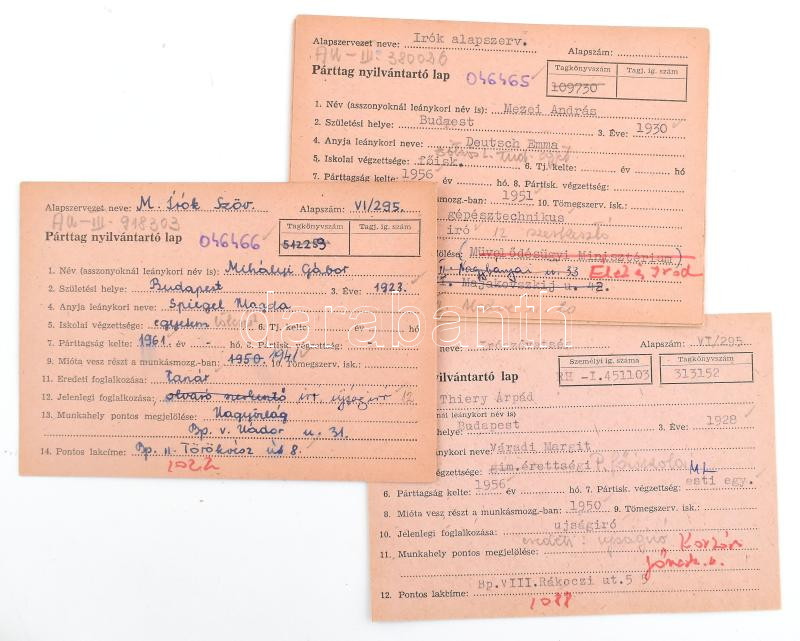 Alapszervezet neve: Irók alapszerv. Alapszám:
AU-III-380026
Párttag nyilvántartó lap 046465 Tagkönyvszám Tagj. ig. szám
109730
1. Név (asszonyoknál leánykori név is): Mezei András
2. Születési helye: Budapest 3. Éve: 1930
4. Anyja leánykori neve: Deutsch Emma
5. Iskolai végzettsége: főisk. 6. Tj. kelte: év hó
7. Párttagság kelte: 1956 év hó. 8. Pártisk. végzettség:
mozg.-ban: 1951 10. Tömegszerv. isk.:
gépésztechnikus
iró 12 szerkesztő
(Müvelődésügyi Minisztérium)
II. Nagybányai u. 33 Élet és Irod
Majakovszkij u. 42.
Alapszervezet neve: M. Írók Szöv. Alapszám: VI/295.
AU-III-918303
Párttag nyilvántartó lap 046466 Tagkönyvszám Tagj. ig. szám
512259
1. Név (asszonyoknál leánykori név is): Mihályi Gábor
2. Születési helye: Budapest 3. Éve: 1923.
4. Anyja leánykori neve: Spiegel Magda
5. Iskolai végzettsége: egyetem 6. Tj. kelte: év hó
7. Párttagság kelte: 1961. év - hó. 8. Pártisk. végzettség: -
9. Mióta vesz részt a munkásmozg.-ban: 1950. 1941 10. Tömegszerv. isk.:
11. Eredeti foglalkozása: tanár
12. Jelenlegi foglalkozása: olvasó szerkesztő irt. ujságiró 12
13. Munkahely pontos megjelölése: Nagyvilág
Bp. V. Nádor u. 31.
14. Pontos lakcíme: Bp. II. Törökvész út 8.
1022
neve: Alapszám: VI/295
nyilvántartó lap Személyi ig. száma Tagkönyvszám
RH -I.451103 313152
Thiery Árpád
leánykori név is)
helye: Budapest 3. Éve: 1928
leánykori neve: Váradi Margit
végzettsége: gim.érettségi P. főiskola
ML
6. Párttagság kelte: 1956 év hó. 7. Pártisk. végzettség: esti egy.
8. Mióta vesz részt a munkásmozg.-ban: 1950 9. Tömegszerv. isk.:
10. Jelenlegi foglalkozása: ujságiró
eredeti: ujságiró
11. Munkahely pontos megjelölése: Kortárs
12. Pontos lakcíme: Bp.VIII.Rákoczi ut.5
1088
darabanth